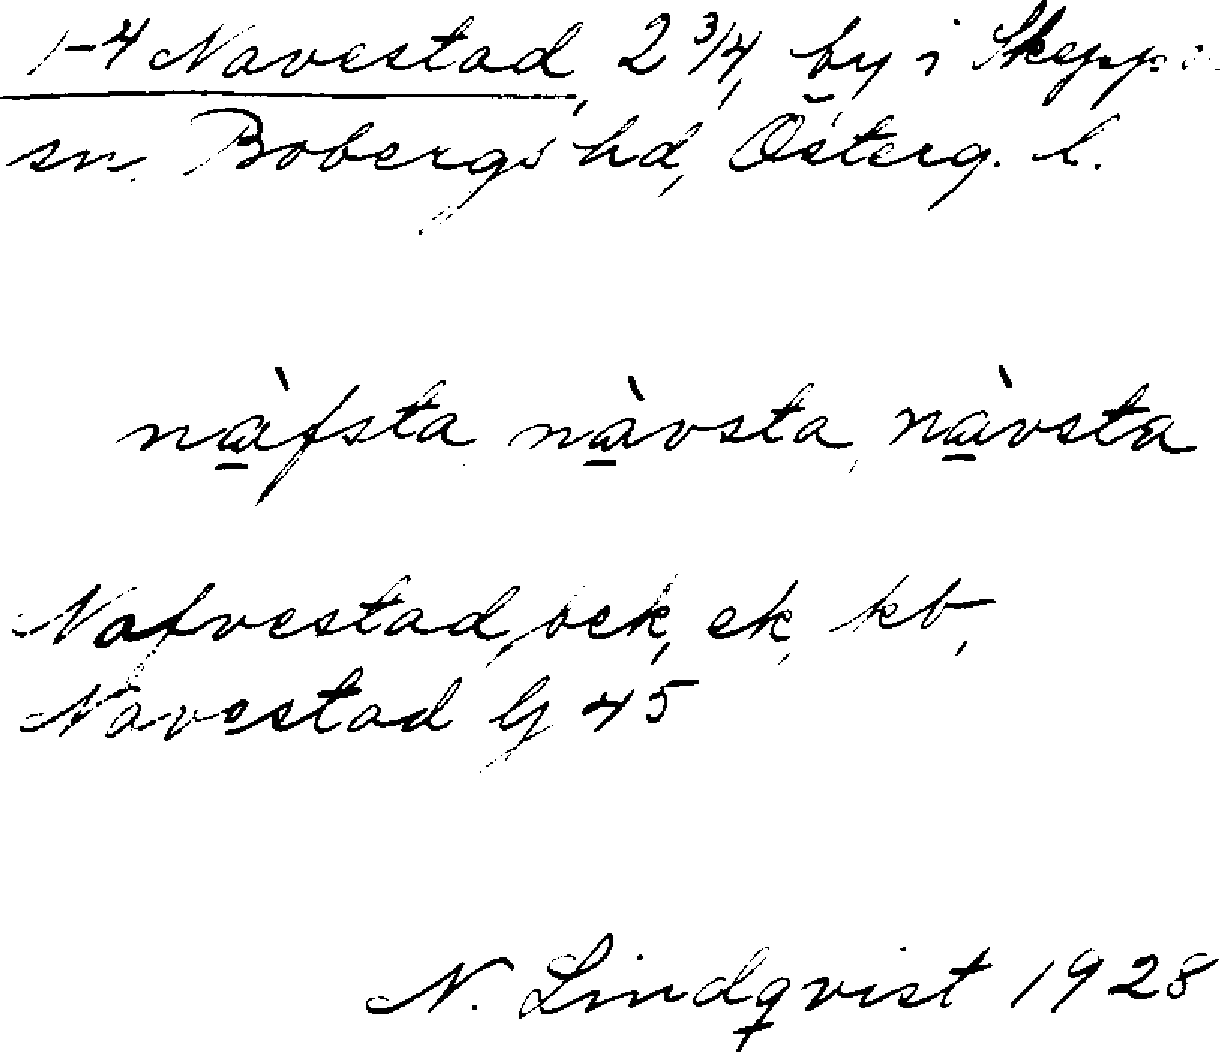 1-4 Navestad, 2 3/4, by i Skepp
sn. Bobergs hd, Österg. l.
nàfsta nàvsta, nàvsta
Nafvestad, bek, ek, kb,
Navestad G 45
N. Lindqvist 1928